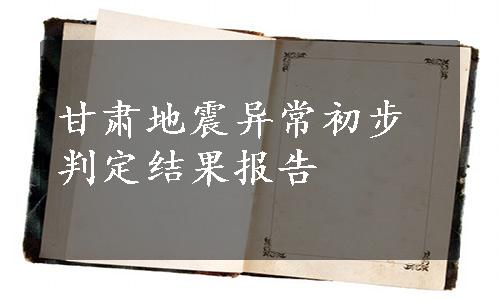 甘肃地震异常初步
判定结果报告